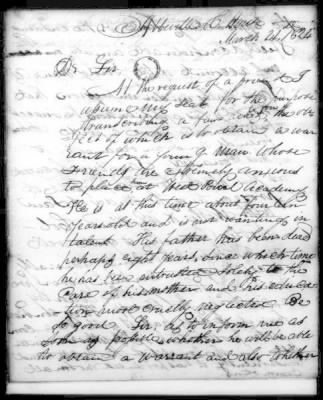 Abbeville C. House
March 24, 1824
Dr Sir
At the request of a friend I
assume my seat for the purpose
transcribing a few lines the ob-
ject of which is to obtain a war
rant for a young man whose
Friends are extremely anxious
to place at West Point Academy
He is at this time about fourteen
years old and is not wanting in
talent His father has been dead
perhaps eight years, since which time
he has been entrusted solely to the
Care of his mother and his educa
tion most cruelly neglected Be
so good, Sir, as to inform me as
soon as possible whether he will be able
to obtain a warrant and also whether